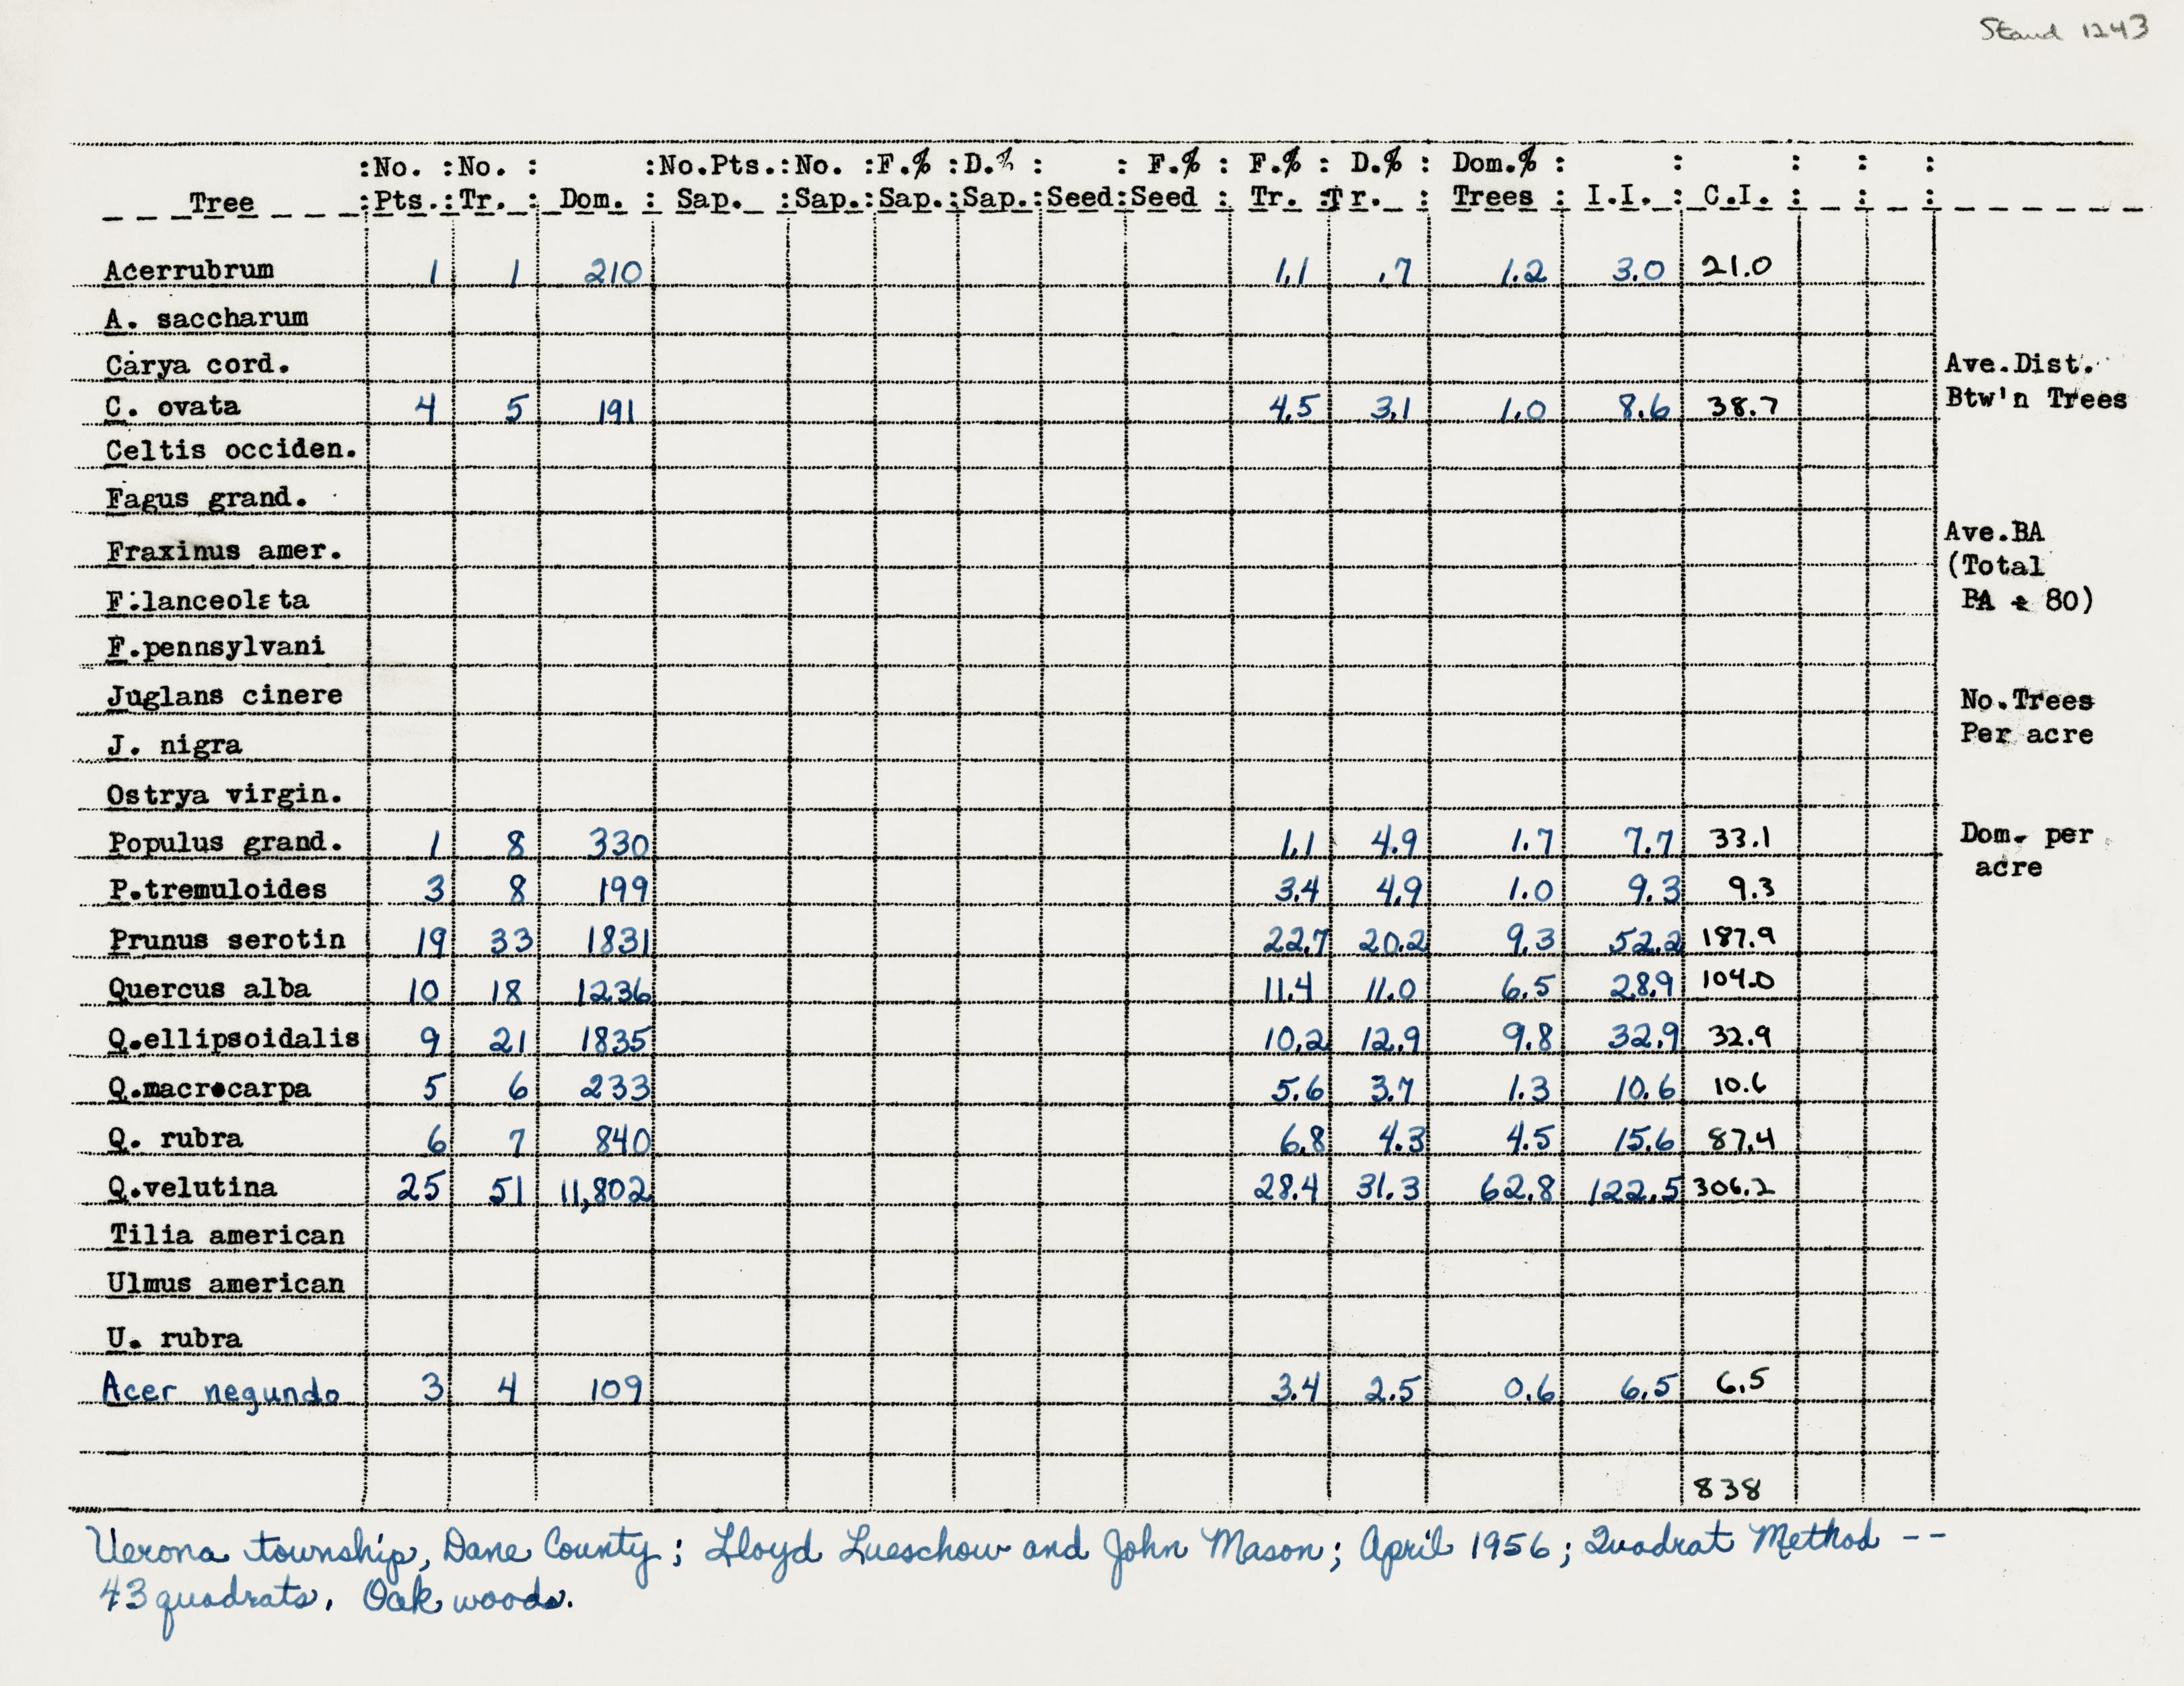 Stand 1243
:No. :No. : :No.Pts.:No. :F.% :D.% : : F.% : F.% : D.% : Dom.% : : : : :
Tree :Pts.:Tr. : Dom. : Sap. :Sap.:Sap.:Sap.:Seed:Seed : Tr. :Tr. : Trees : I.I. : C.I. : : :
Acerrubrum 1 1 210 1.1 .7 1.2 3.0 21.0
A. saccharum
Carya cord.
Ave.Dist.
C. ovata 4 5 191 4.5 3.1 1.0 8.6 38.7
Btw'n Trees
Celtis occiden.
Fagus grand.
Ave.BA
Fraxinus amer.
(Total
F.lanceolata
BA ÷ 80)
F.pennsylvani
Juglans cinere
No.Trees
J. nigra
Per acre
Ostrya virgin.
Populus grand. 1 8 330 1.1 4.9 1.7 7.7 33.1
Dom. per
acre
P.tremuloides 3 8 199 3.4 4.9 1.0 9.3 9.3
Prunus serotin 19 33 1831 22.7 20.2 9.3 52.2 187.9
Quercus alba 10 18 1236 11.4 11.0 6.5 28.9 104.0
Q.ellipsoidalis 9 21 1835 10.2 12.9 9.8 32.9 32.9
Q.macrocarpa 5 6 233 5.6 3.7 1.3 10.6 10.6
Q. rubra 6 7 840 6.8 4.3 4.5 15.6 87.4
Q.velutina 25 51 11,802 28.4 31.3 62.8 122.5 306.2
Tilia american
Ulmus american
U. rubra
Acer negundo 3 4 109 3.4 2.5 0.6 6.5 6.5
838
Verona township, Dane County; Lloyd Lueschow and John Mason; April 1956; Quadrat Method --
43 quadrats. Oak woods.